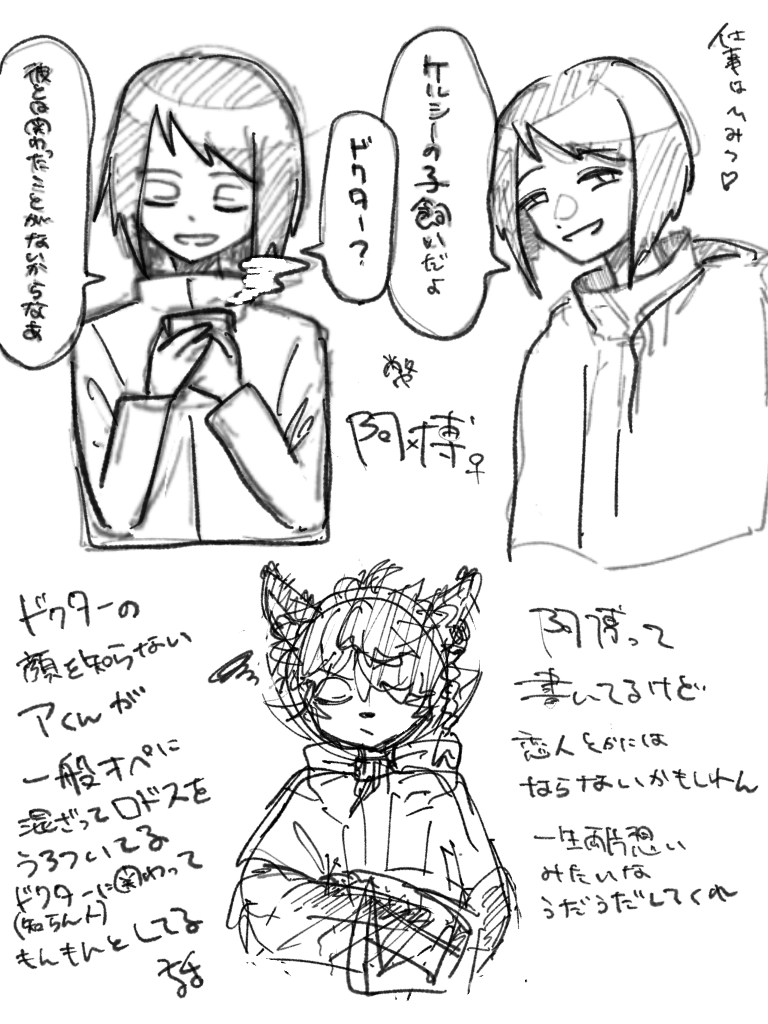 仕事はひみつ♡
ケルシーの子飼いだよ
ドクター?
彼とは関わったことがないからなあ
阿×博♀
ドクターの
顔を知らない
アくんが
一般オペに
混ざってロドスを
うろついてる
ドクターに関わって
(知らん人)
もんもんとしてる
話
阿博って
書いてるけど
恋人とかには
ならないかもしれん
一生両片想い
みたいな
うだうだしてくれ